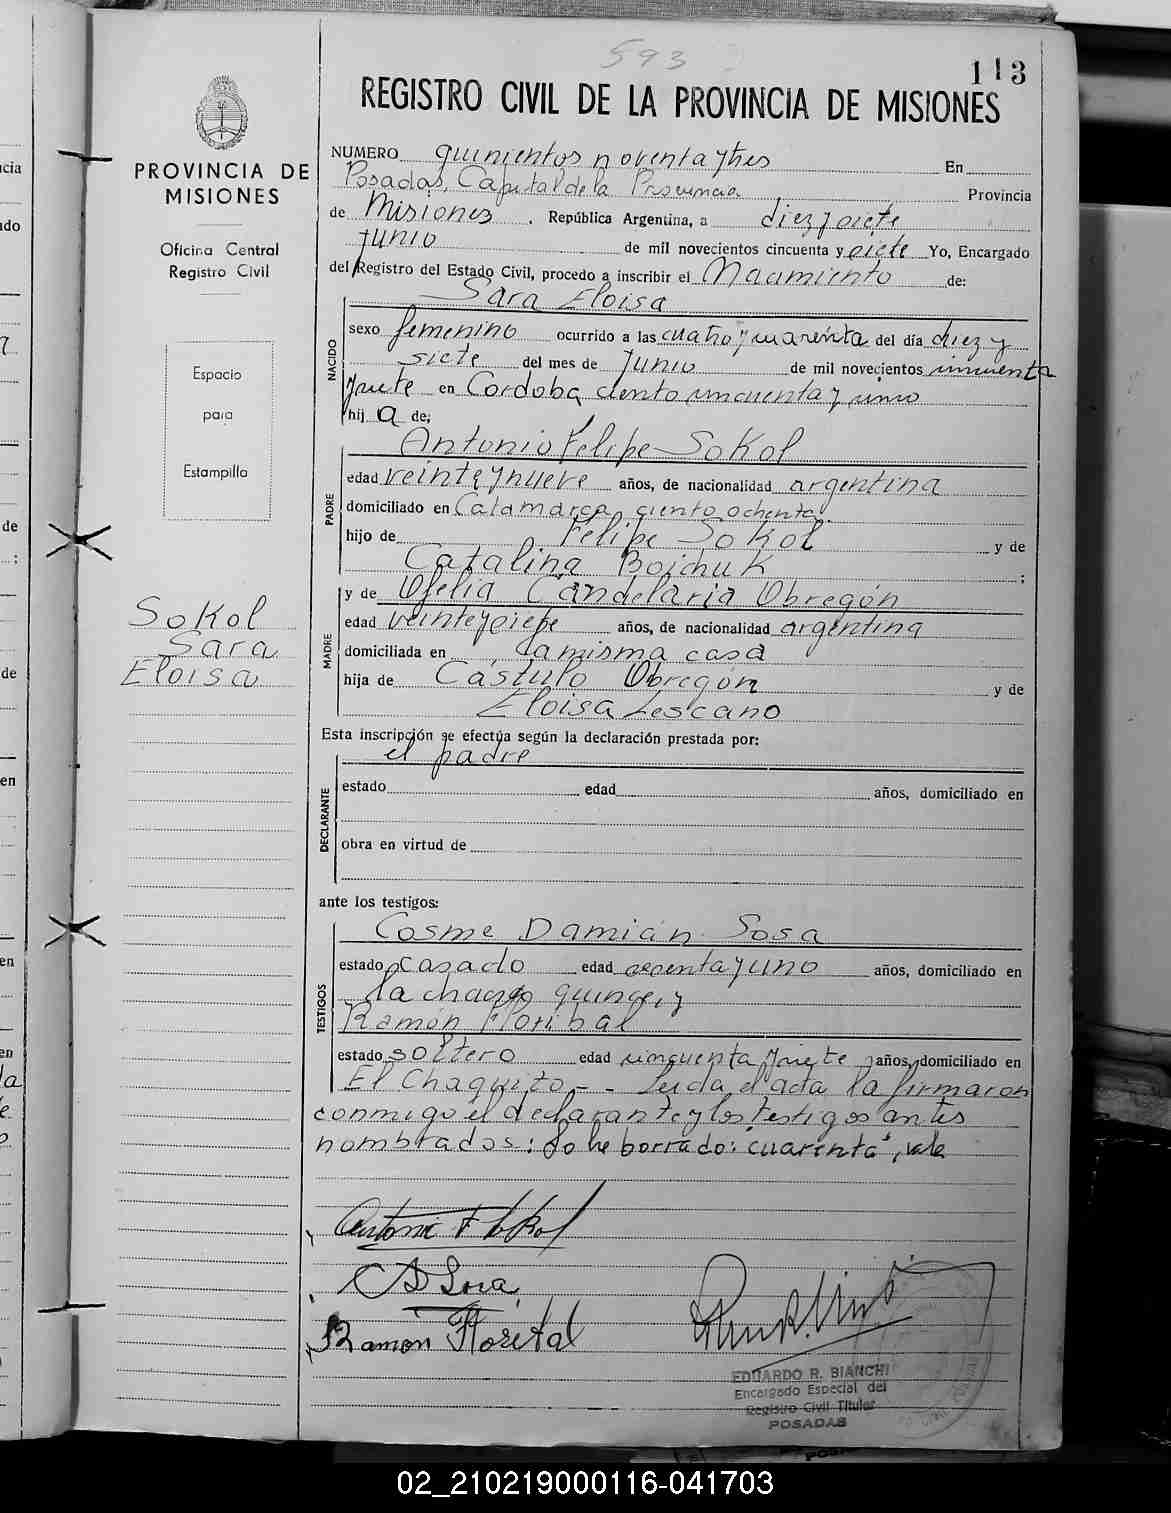 593
113
REGISTRO CIVIL DE LA PROVINCIA DE MISIONES
PROVINCIA DE
MISIONES
Oficina Central
Registro Civil
Espacio
para
Estampilla
Sokol
Sara
Eloisa
NUMERO quinientos noventa y tres En
Posadas, Capital de la Provincia Provincia
de Misiones . República Argentina, a diez y siete
Junio de mil novecientos cincuenta y siete Yo, Encargado
del Registro del Estado Civil, procedo a inscribir el Nacimiento de:
Sara Eloisa
NACIDO
sexo femenino ocurrido a las cuatro y cuarenta del día diez y
siete del mes de Junio de mil novecientos cincuenta
y siete en Cordoba ciento cincuenta y uno
hij a de:
Antonio Felipe Sokol
PADRE
edad veinte y nueve años, de nacionalidad argentina
domiciliado en Catamarca ciento ochenta
hijo de Felipe Sokol y de
Catalina Boichuk ;
y de Ofelia Candelaria Obregón
MADRE
edad veinte y siete años, de nacionalidad argentina
domiciliada en la misma casa
hija de Cástulo Obregón y de
Eloisa Lescano
Esta inscripción se efectúa según la declaración prestada por:
el padre
DECLARANTE
estado edad años, domiciliado en
obra en virtud de
ante los testigos:
Cosme Damián Sosa
TESTIGOS
estado casado edad sesenta y uno años, domiciliado en
la chacra quince, y
Ramón Floribal
estado soltero edad cincuenta y siete años, domiciliado en
El Chaquito - - Leida el acta la firmaron
conmigo el declarante y los testigos antes
nombrados: Lo he borrado: "cuarenta", vale
Antonio F Sokol
C D Sosa
Ramón Florital
EDUARDO R. BIANCHI
Encargado Especial del
Registro Civil Titular
POSADAS
02_210219000116-041703